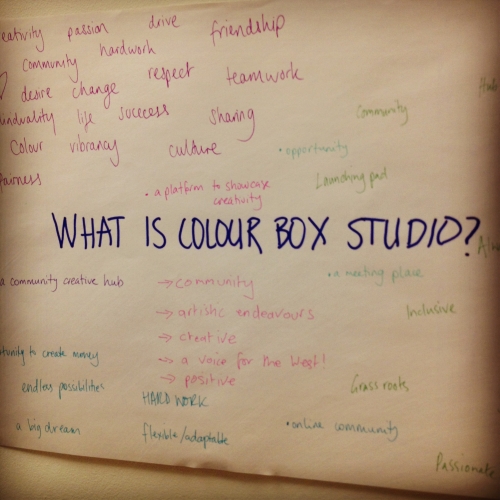 eativity passion drive friendship
community hardwork
desire change respect teamwork
unduality life success sharing
Colour vibrancy culture
community
• opportunity
fairness
Launching pad
• a platform to showcase
creativity
WHAT IS COLOUR BOX STUDIO?
a community creative hub
→ community
• a meeting place
→ artistic endeavours
Inclusive
→ creative
tunity to create money
→ a voice for the West!
endless possibilities
→ positive
Grass roots
HARD WORK
a big dream
flexible/adaptable
• online community
Passionate